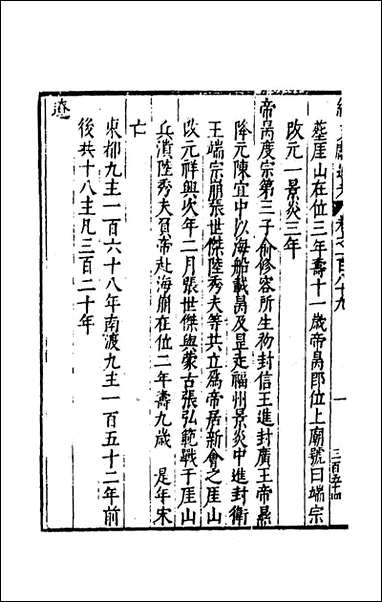 卷之百八十九
一
三百五十四
葬厓山在位三年壽十一歲帝昺即位上廟號曰端宗
改元一景炎三年
帝昺度宗第三子俞修容所生初封信王進封廣王帝㬎
降元陳宜中以海船載昺及昰走福州景炎中進封衛
王端宗崩張世傑陸秀夫等共立爲帝居新會之厓山
改元祥興次年二月張世傑與蒙古張弘範戰于厓山
兵潰陸秀夫負帝赴海崩在位二年壽九歲 是年宋
亡
東都九主一百六十八年南渡九主一百五十二年前
後共十八主凡三百二十年
遼